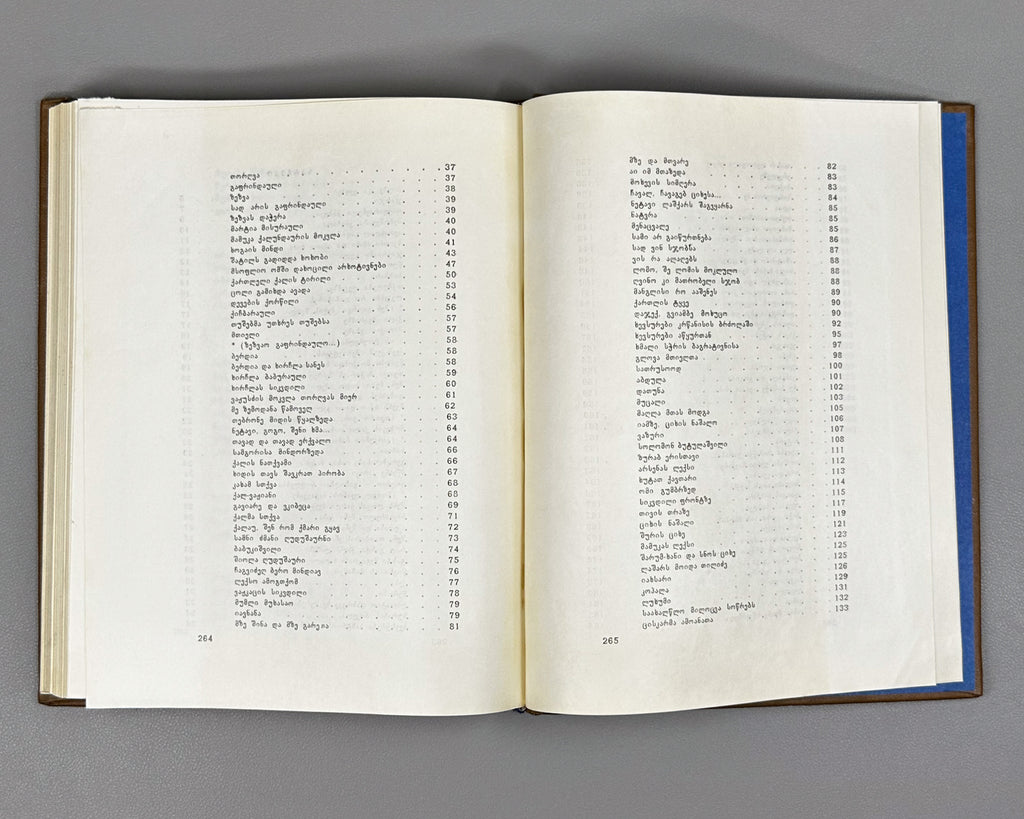 თორღვა . . . . . . . . 37
გაფრინდაული . . . . . . . . 37
ზეზვა . . . . . . . . 38
სად არის გაფრინდაული . . . . . . 39
ზეზვას დაჭერა . . . . . . . 39
მარტია მისურაული . . . . . . . 40
მამუკა ქალუნდაურის მოკვლა . . . . . 40
ხოგაის მინდი . . . . . . . 41
შატილს გადიდდა ხოხობი . . . . . 43
მსოფლიო ომში დახოცილი არხოტივნები . . . . 47
ქართლელი ქალის ტირილი . . . . . 50
ცოლი გამიხდა ავადა . . . . . . 53
დევების ქორწილი . . . . . . 54
ქიჩბარაული . . . . . . . 56
თუშებმა უთხრეს თუშებსა . . . . . 57
მთიელი . . . . . . . . 57
* (ზეზვაო გაფრინდაულო...) . . . . . 58
ბერდია . . . . . . . . 58
ბერდია და ხირჩლა სანეს . . . . . 58
ხირჩლა ბაბურაული . . . . . . 59
ხირჩლას სიკვდილი . . . . . . 60
ვაჟუსძის მოკვლა თორღვას მიერ . . . . 61
მე ზემოდანა წამოველ . . . . . 62
თებრონე მიდის წყალზედა . . . . . 63
ნეტავი, გოგო, შენი ხმა... . . . . . 64
თავად და თავად ერქვალო . . . . . 64
სამგორისა მინდორზედა . . . . . 66
ქალის ნათქვამი . . . . . . 66
ხიდის თავს შავკრათ პირობა . . . . 67
კახამ სთქვა . . . . . . . 68
ქალ-ვაჟიანი . . . . . . . 68
გავიარე და ვკიბეცა . . . . . . 69
ქალმა სთქვა . . . . . . . 71
ქალაუ, შენ რომ ქმარი გყავ . . . . 72
სამნი ძმანი ღუდუშაურნი . . . . . 73
ბაბუკიშვილი . . . . . . . 74
შიოლა ღუდუშაური . . . . . . 75
ბერო მინდიავ . . . . . 76
ლექსო ამოგთქომ . . . . . . 77
ვაჟკაცის სიკვდილი . . . . . . 78
მუმლი მუხასაო . . . . . . 79
იავნანა . . . . . . . . 79
მზე შინა და მზე გარეთა . . . . . 81
264
მზე და მთვარე . . . . . . . 82
აი იმ მთაზედა . . . . . . . 83
მოხევის სიმღერა . . . . . . 83
ჩავალ, ჩავაგებ ციხესა... . . . . . 84
ნეტავი ლაშქარს შაგვყარნა . . . . . 85
ნატვრა . . . . . . . . 85
მენაცვალე . . . . . . . 85
სამი არ გაიწურთნება . . . . . . 86
სად ვინ სჯობნა . . . . . . 87
ვის რა ალაღებს . . . . . . 88
ლომო, შე ლომის მოკლულო . . . . . 88
ღვინო კი მათრობელი სჯობ . . . . . 88
მანგლისი რო ააშენეს . . . . . 89
ქართლის ტყვე . . . . . . . 90
დაჯექ, გვიამბე მოხუცო . . . . . 90
ხევსურები კრწანისის ბრძოლაში . . . . 92
ხევსურები აწყურთან . . . . . . 95
ხმალი სჭრის ბაგრატივნისა . . . . . 97
გლოვა მთიელთა . . . . . . 98
სათრუსოოდ . . . . . . . 100
აბდულა . . . . . . . . 101
დათუნა . . . . . . . . 102
მუცალი . . . . . . . . 103
მაღლა მთას მოდგა . . . . . . 105
იამზე, ციხის ნაშალო . . . . . . 106
ვაზური . . . . . . . . 107
სოლომონ ბუტულაშვილი . . . . . 108
ზურაბ ერისთავი . . . . . . 111
არსენას ლექსი . . . . . . 112
ხუტათ ქავთარი . . . . . . 113
ომი გუმბრზედ . . . . . . 114
სიკვდილი ფრონტზე . . . . . . 115
თივის თრაზე . . . . . . . 117
ციხის ნაშალი . . . . . . . 119
შურის ციხე . . . . . . . 121
მამუკას ლექსი . . . . . . 123
შარუმ-ხანი და სნოს ციხე . . . . . 125
ლაშარს მოიდა თილიძე . . . . . 125
იახსარი . . . . . . . . 126
კოპალა . . . . . . . . 129
ლუხუმი . . . . . . . . 131
საახალწლო მილოცვა სოწრებს . . . . 132
ცისკარმა ამოანათა . . . . . . 133
265